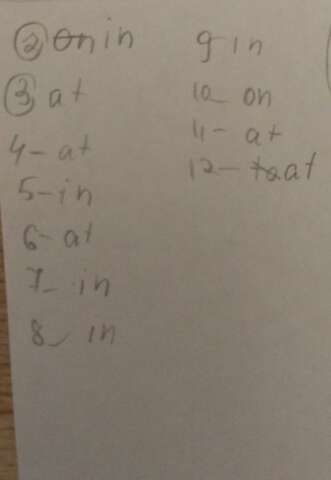 2 in
3 at
4- at
5- in
6- at
7- in
8- in
9 in
10 on
11- at
12- at